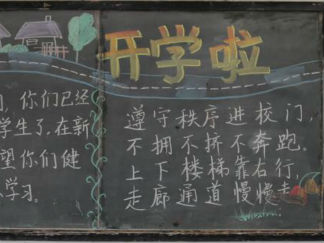 开学啦
你们已经
学生了,在新
望你们健
学习。
遵守秩序进校门,
不拥不挤不奔跑。
上下楼梯靠右行,
走廊通道慢慢走